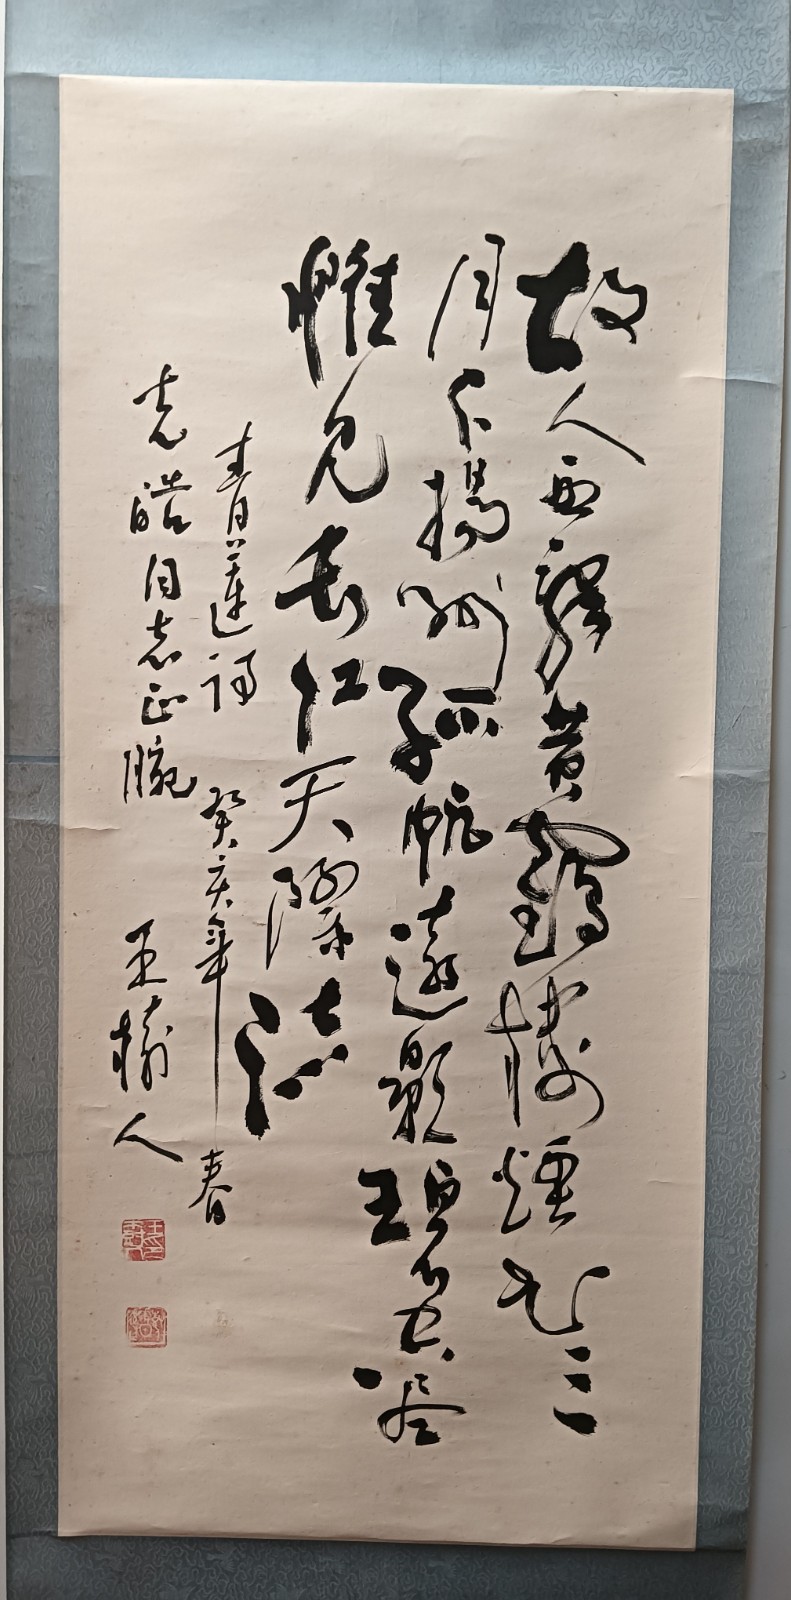 故人西辭黄鶴樓煙花三
月下揚州孤帆遠影碧空尽
惟见長江天際流
青蓮詩 癸亥年春
克皓同志正腕 王樹人